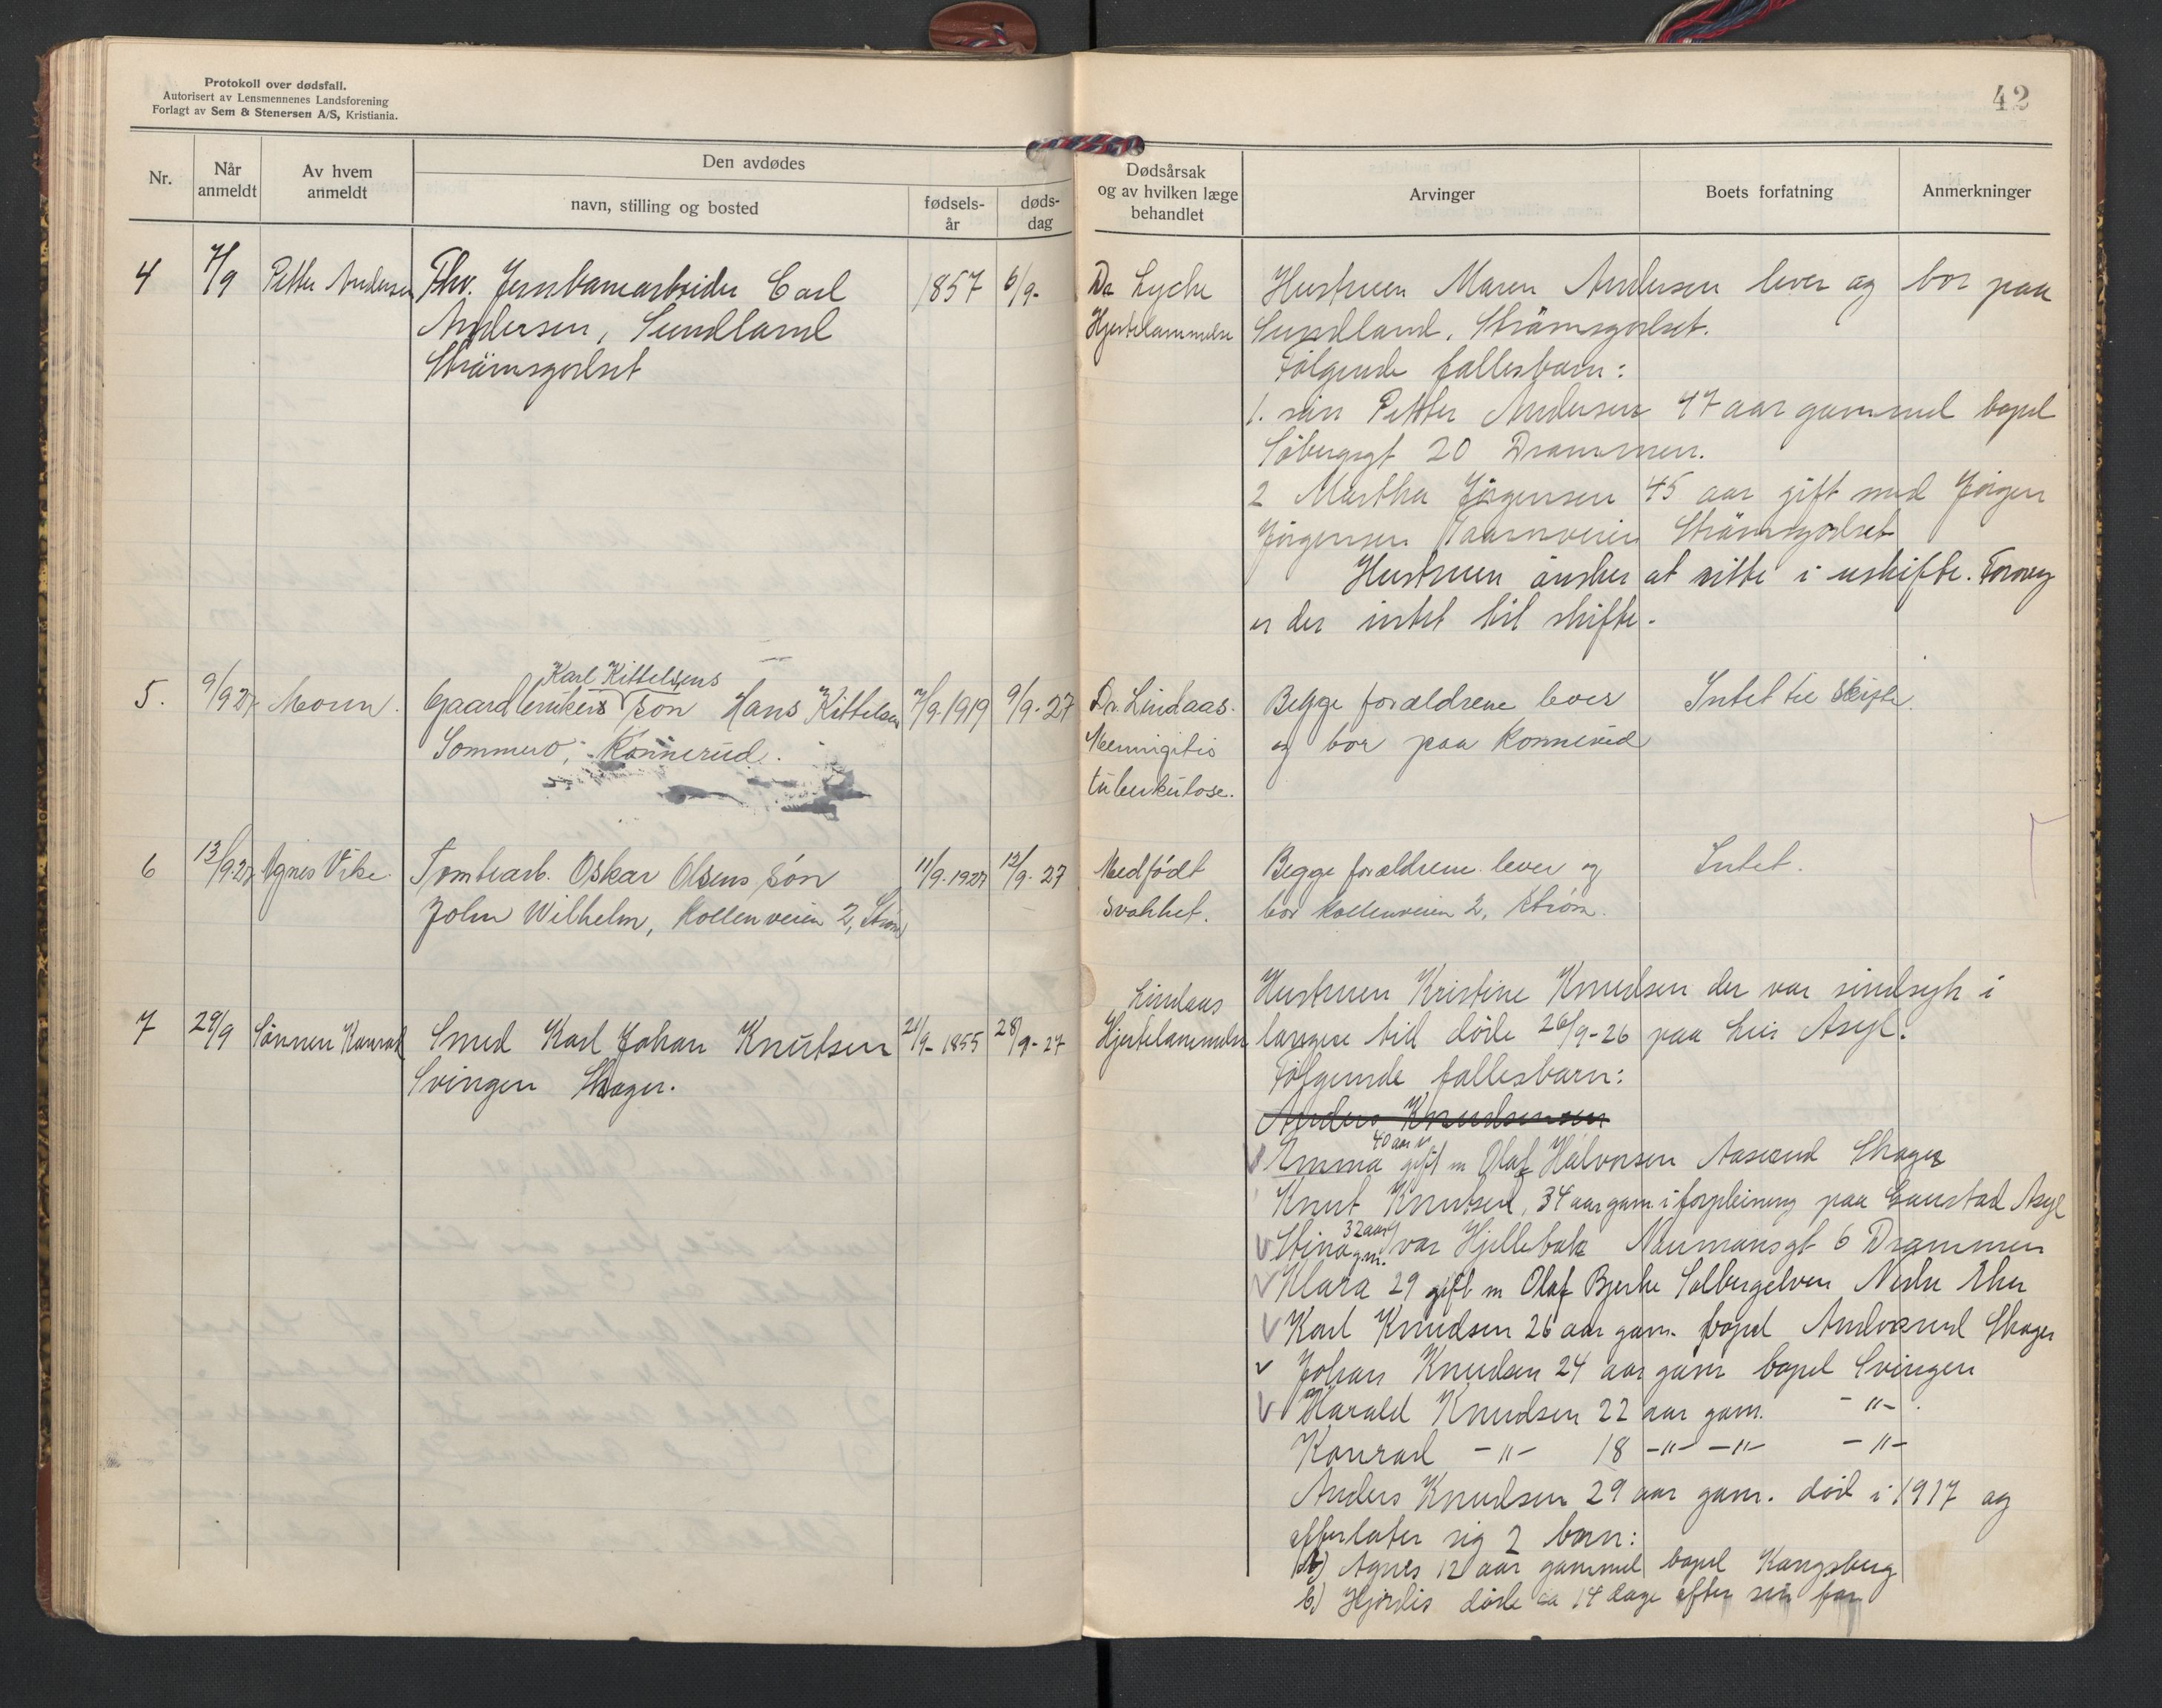 Protokoll over dødsfall.
Autorisert av Lensmennenes Landsforening
Forlagt av Sem & Stenersen A/S, Kristiania.
42
Nr.
Når anmeldt
Av hvem anmeldt
Den avdødes
navn, stilling og bosted
fødsels-år
døds-dag
Dødsårsak og av hvilken læge behandlet
Arvinger
Boets forfatning
Anmerkninger
4
7/9
Petter Andersen
Fhv. Jernbanearbeider Carl
Andersen, Sundland
Strömsgodset
1857
6/9-
Dr Lyche
Hjertelammelse
Hustruen Maren Andersen lever og bor paa
Sundland, Strömsgodset.
Følgende fallesbarn:
1. sön Petter Andersen 47 aar gammel bopel
Söbergsgt 20 Drammen.
2 Martha Jörgensen 45 aar gift med Jörgen
Jörgensen Taarnveien Strömsgodset
Hustruen önsker at sitte i uskifte. Forövrig
er der intet til skifte.
5.
9/9 27
Moren.
Karl Kittelsens
Gaardbrukers søn Hans Kittelsen
Sommero, Konnerud.
7/9-1919
9/9-27
Dr. Lindaas.
Mennigitis
tuberkulose.
Begge forældrene lever
og bor paa Konnerud
Intet til skifte.
6
13/9 27
Agnes Vike
Tomtearb. Oskar Olsens søn
John Wilhelm, Kollenveien 2, Strøm
11/9-1927
12/9-27
Medfødt
svakhet.
Begge forældrene lever og
bor Kollenveien 2, Strøm.
Intet.
7
29/9
Sönnen Konrad
Smed Karl Johan Knutsen
Svingen Skoger.
21/9-1855
28/9-27
Lindaas
Hjertelammelse
Hustruen Kristine Knudsen der var sindsyk i
langere tid döde 26/9-26 paa Lier Asyl.
Følgende fallesbarn:
Anders Knudsen
40 aar
Emma gift m Olaf Halvorsen Aaserud Skoger
Knut Knutsen, 34 aar gam. i forpleining paa Gaustad Asyl
32 aar
Stina g.m. Ivar Hjellebak Naumansgt 6 Drammen
Klara 29 gift m Olaf Bjerke Solbergelven Nedre Eker
Karl Knudsen 26 aar gam. bopel Andorsrud Skoger
Johan Knudsen 24 aar gam bopel Svingen
Harald Knudsen 22 aar gam. -"-
Konrad -"- 18 -"- -"- -"-
Anders Knudsen 29 aar gam. död i 1917 og
efterlater sig 2 barn:
a) Agnes 12 aar gammel bopel Kongsberg
b.) Hjördis döde ca 14 dage efter sin far